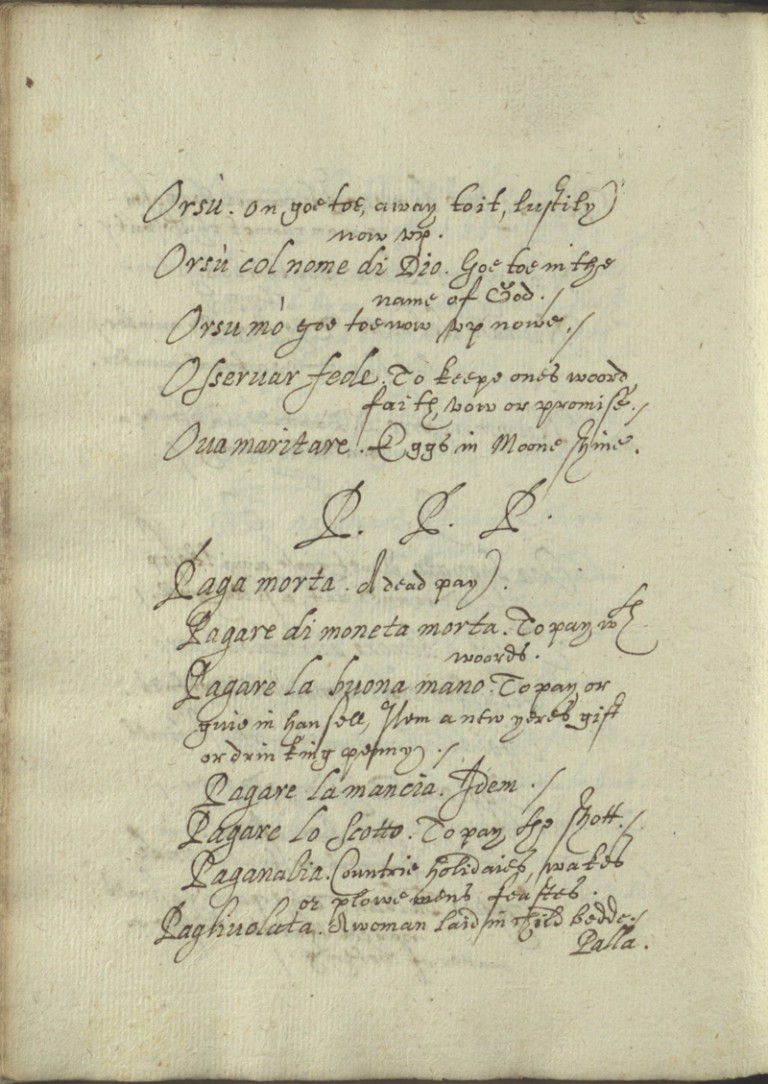 Orsù. on goe toe, away to it, lustily
now vp.
Orsù col nome di Dio. Goe toe in the
name of God./
Orsu mò goe toe now vp nowe./
Osseruar fede. To keepe ones woord
faith, vow or promise./
Oua maritare. Eggs in Moone shine.
P. P. P.
Paga morta. A dead pay.
Pagare di moneta morta. To pay wth
woords.
Pagare la buona mano. To pay or
giue in hansell, Item a new yeres gift
or drinking penny./
Pagare la mancia. Idem./
Pagare lo Scotto. To pay the shott./
Paganalia. Countrie holidaies, wakes
or plowemens feastes.
Pagliuolata. A woman laid in child bedde./
Palla.